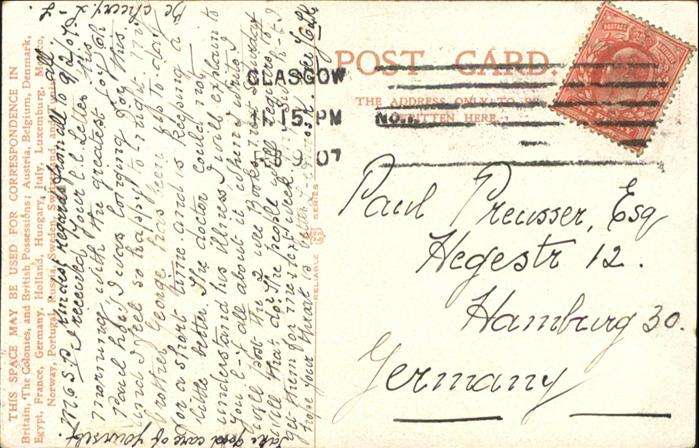 THIS SPACE MAY BE USED FOR CORRESPONDENCE IN
Britain, The Colonies, and British Possessions; Austria, Belgium, Denmark,
Egypt, France, Germany, Holland, Hungary, Italy, Luxemburg,
Norway, Portugal, Russia, Sweden,
Kindest regards from all to all
9/2/07
I received your letter this
morning with the greatest joy Oh
Paul life! I was longing for this
and I feel so happy to night
brother George has been up to day
for a short time and is keeping a
little better. The doctor could not
understand his illness I will explain to
you all about it when I write I
will post the 2 wee Books next Saturday
will that do? The people get
them for me next week.
hope your throat is better
take good care of yourself
Be cheery
POST CARD.
THE ADDRESS ONLY TO BE
WRITTEN HERE.
GLASGOW
11.15 PM
FEB 9 07
RELIABLE
SERIES
Paul Preusser, Esq
Hegestr 12.
Hamburg 30.
Germany